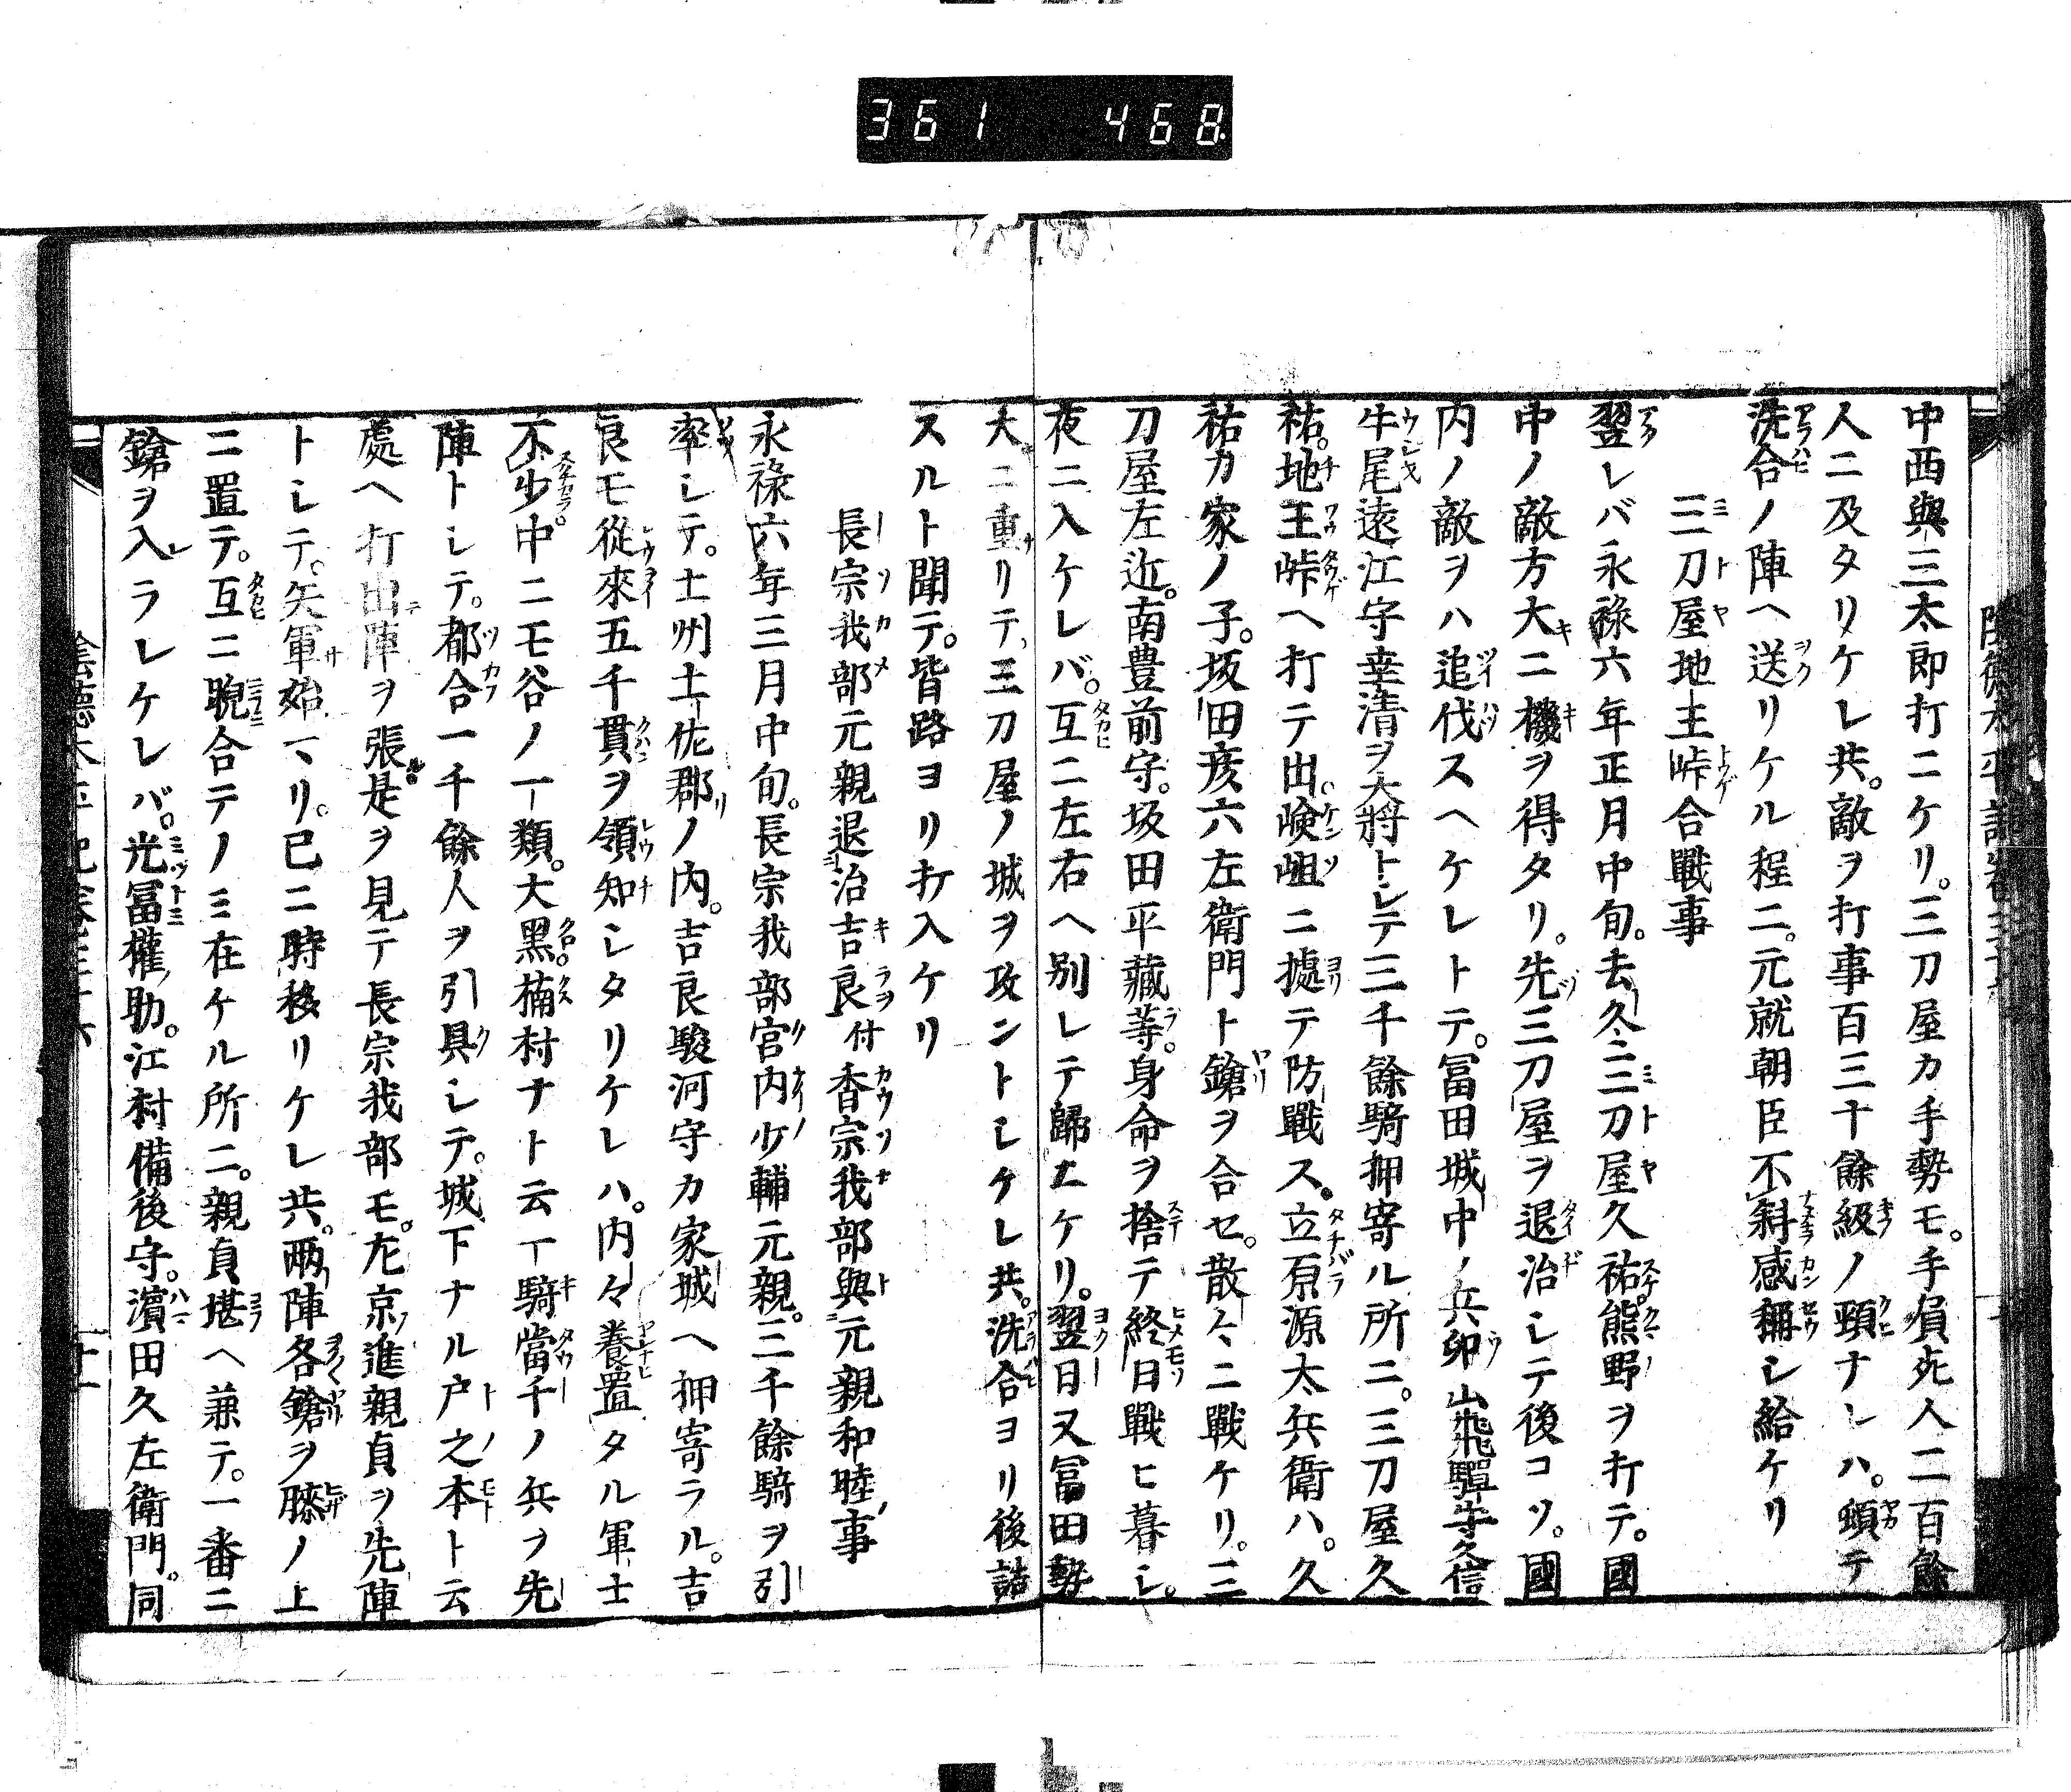 361 468
中西與三太郎打ニケリ。三刀屋カ手勢モ。手負死人二百餘
人ニ及タリケレ共。敵ヲ打事百三十餘級ノ頸ナレハ。頓テ
洗合ノ陣ヘ送リケル程ニ。元就朝臣不斜感稱シ給ケリ
三刀屋地主峠合戰事
翌レバ永祿六年正月中旬。去冬三刀屋久祐。熊野ヲ打テ。國
中ノ敵方大ニ機ヲ得タリ。先三刀屋ヲ退治シテ後コソ。國
内ノ敵ヲハ追伐スヘケレトテ。冨田城中ノ兵卯山飛驒守久信
牛尾遠江守幸清ヲ大將トシテ三千餘騎押寄ル所ニ。三刀屋久
祐。地王峠ヘ打テ出。嶮岨ニ據テ防戰ス。立原源太兵衛ハ。久
祐カ家ノ子。坂田彦六左衛門ト鎗ヲ合セ。散々ニ戰ケリ。三
刀屋左近。南豊前守。坂田平藏等。身命ヲ捨テ終日戰ヒ暮シ。
夜ニ入ケレバ。互ニ左右ヘ別レテ歸ケリ。翌日又冨田勢
大ニ重リテ三刀屋ノ城ヲ攻ントシケレ共。洗合ヨリ後詰
スルト聞テ。皆路ヨリ打入ケリ
長宗我部元親退治吉良付香宗我部與元親和睦事
永祿六年三月中旬。長宗我部宮内少輔元親。三千餘騎ヲ引
率シテ。土州土佐郡ノ内。吉良駿河守カ家城ヘ押寄ラル。吉
良モ從來五千貫ヲ領知シタリケレハ。内々養置タル軍士
不少。中ニモ谷ノ一類。大黑。楠村ナト云一騎當千ノ兵ヲ先
陣トシテ。都合一千餘人ヲ引具シテ。城下ナル戸之本ト云
處ヘ打出陣ヲ張。是ヲ見テ長宗我部モ。左京進親貞ヲ先陣
トシテ。矢軍始マリ。已ニ時移リケレ共。兩陣各鎗ヲ膝ノ上
ニ置テ。互ニ睨合テノミ在ケル所ニ。親貞堪ヘ兼テ。一番ニ
鎗ヲ入ラレケレバ。光冨權助。江村備後守。濵田久左衛門。同